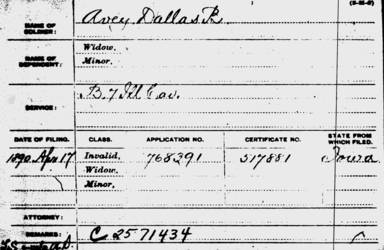 NAME OF SOLDIER: Avey, Dallas R.
NAME OF DEPENDENT: Widow,
Minor,
SERVICE: B. 7 Ill Cav.
DATE OF FILING. CLASS. APPLICATION NO. CERTIFICATE NO. STATE FROM WHICH FILED.
1890 Apr 17 Invalid, 768391 517881 Iowa
Widow,
Minor,
ATTORNEY:
REMARKS: C 2571434